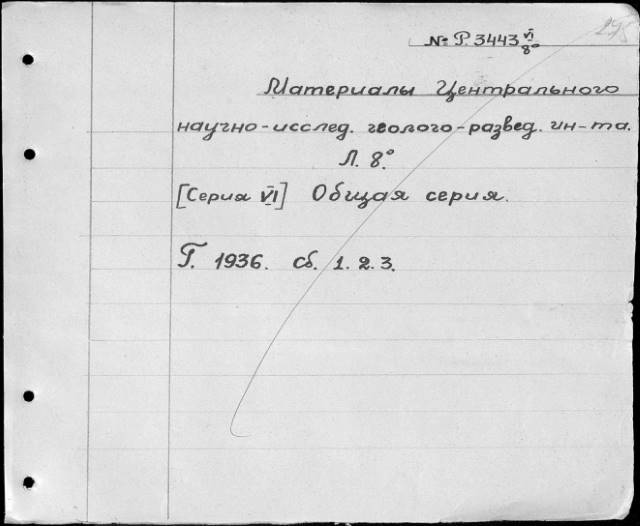 № Р. 3443 VI/8°
Материалы Центрального
научно-исслед. геолого-развед. ин-та.
Л. 8°
[Серия VI] Общая серия.
Г. 1936. Сб. 1. 2. 3.